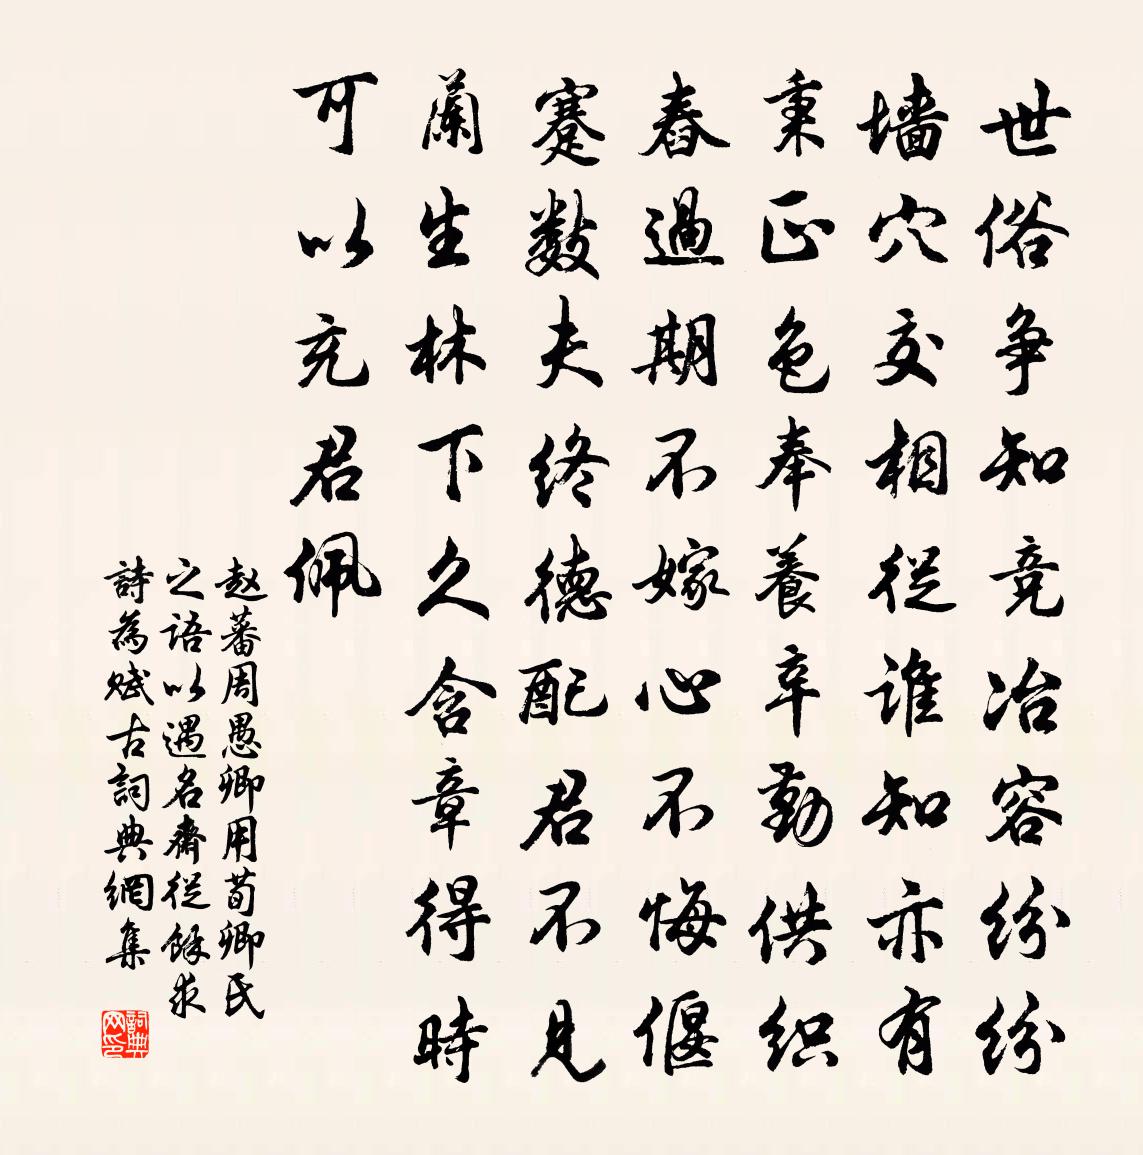 世俗争知竞冶容纷纷
墙穴交相従谁知亦有
秉正色奉養辛勤供织
春過期不嫁心不悔偃
蹇数夫终德配君不見
蘭生林下久含章得時
可以充君佩
赵蕃周愚卿用荀卿氏
之语以遇名齋従餘求
詩為赋古詞典網集
詞典网印